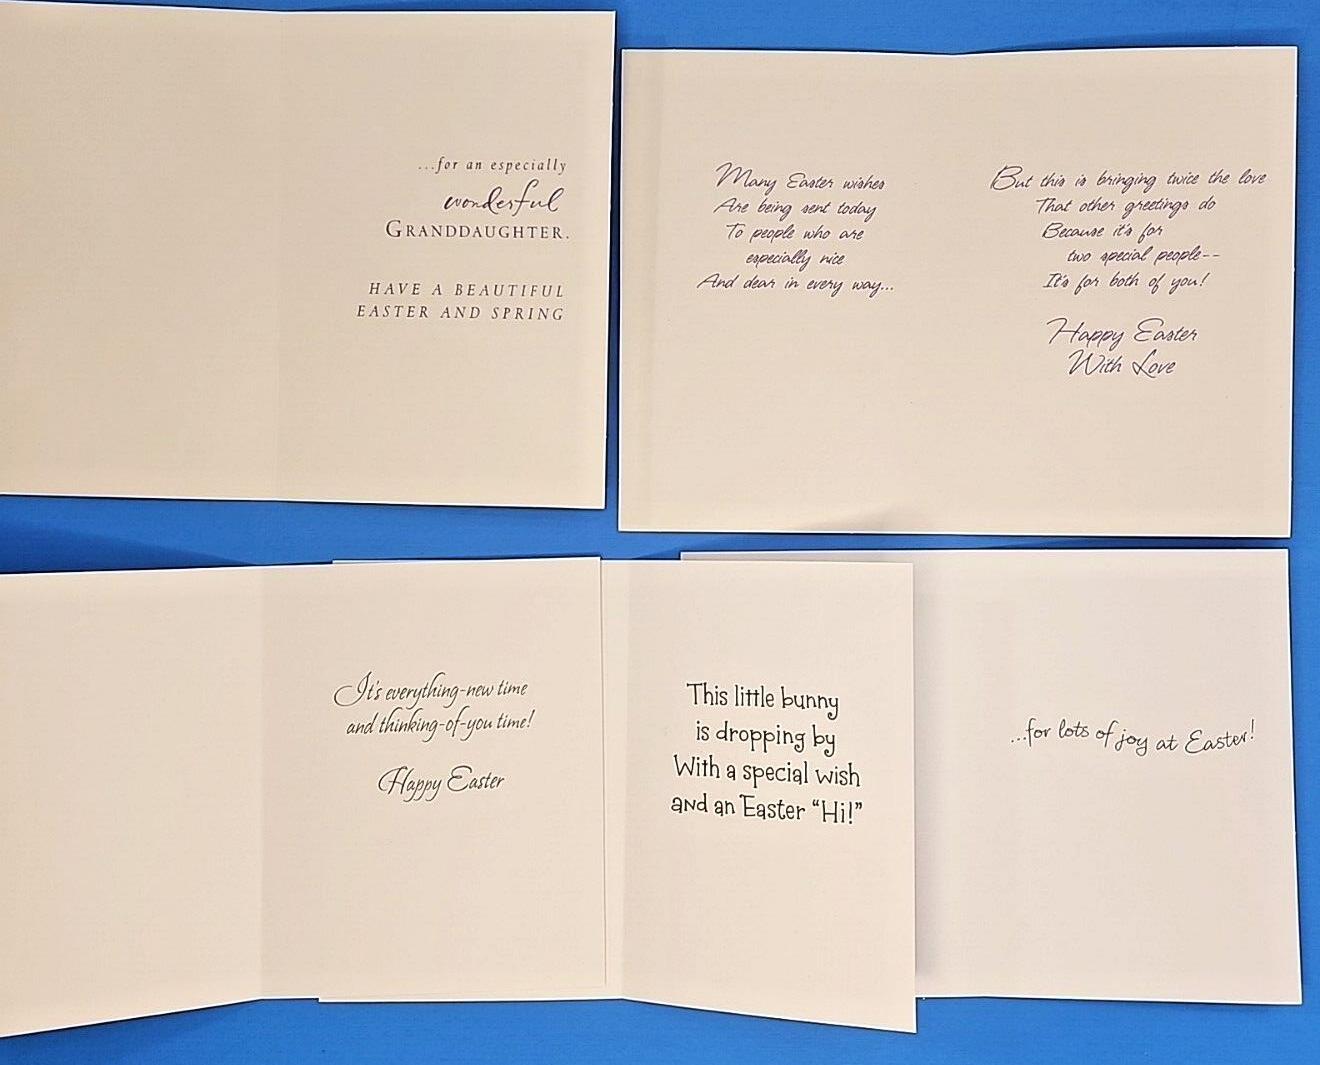 ...for an especially
wonderful
GRANDDAUGHTER.
HAVE A BEAUTIFUL
EASTER AND SPRING
Many Easter wishes
Are being sent today
To people who are
especially nice
And dear in every way...
But this is bringing twice the love
That other greetings do
Because it's for
two special people--
It's for both of you!
Happy Easter
With Love
It's everything-new time
and thinking-of-you time!
Happy Easter
This little bunny
is dropping by
With a special wish
and an Easter “Hi!”
...for lots of joy at Easter!